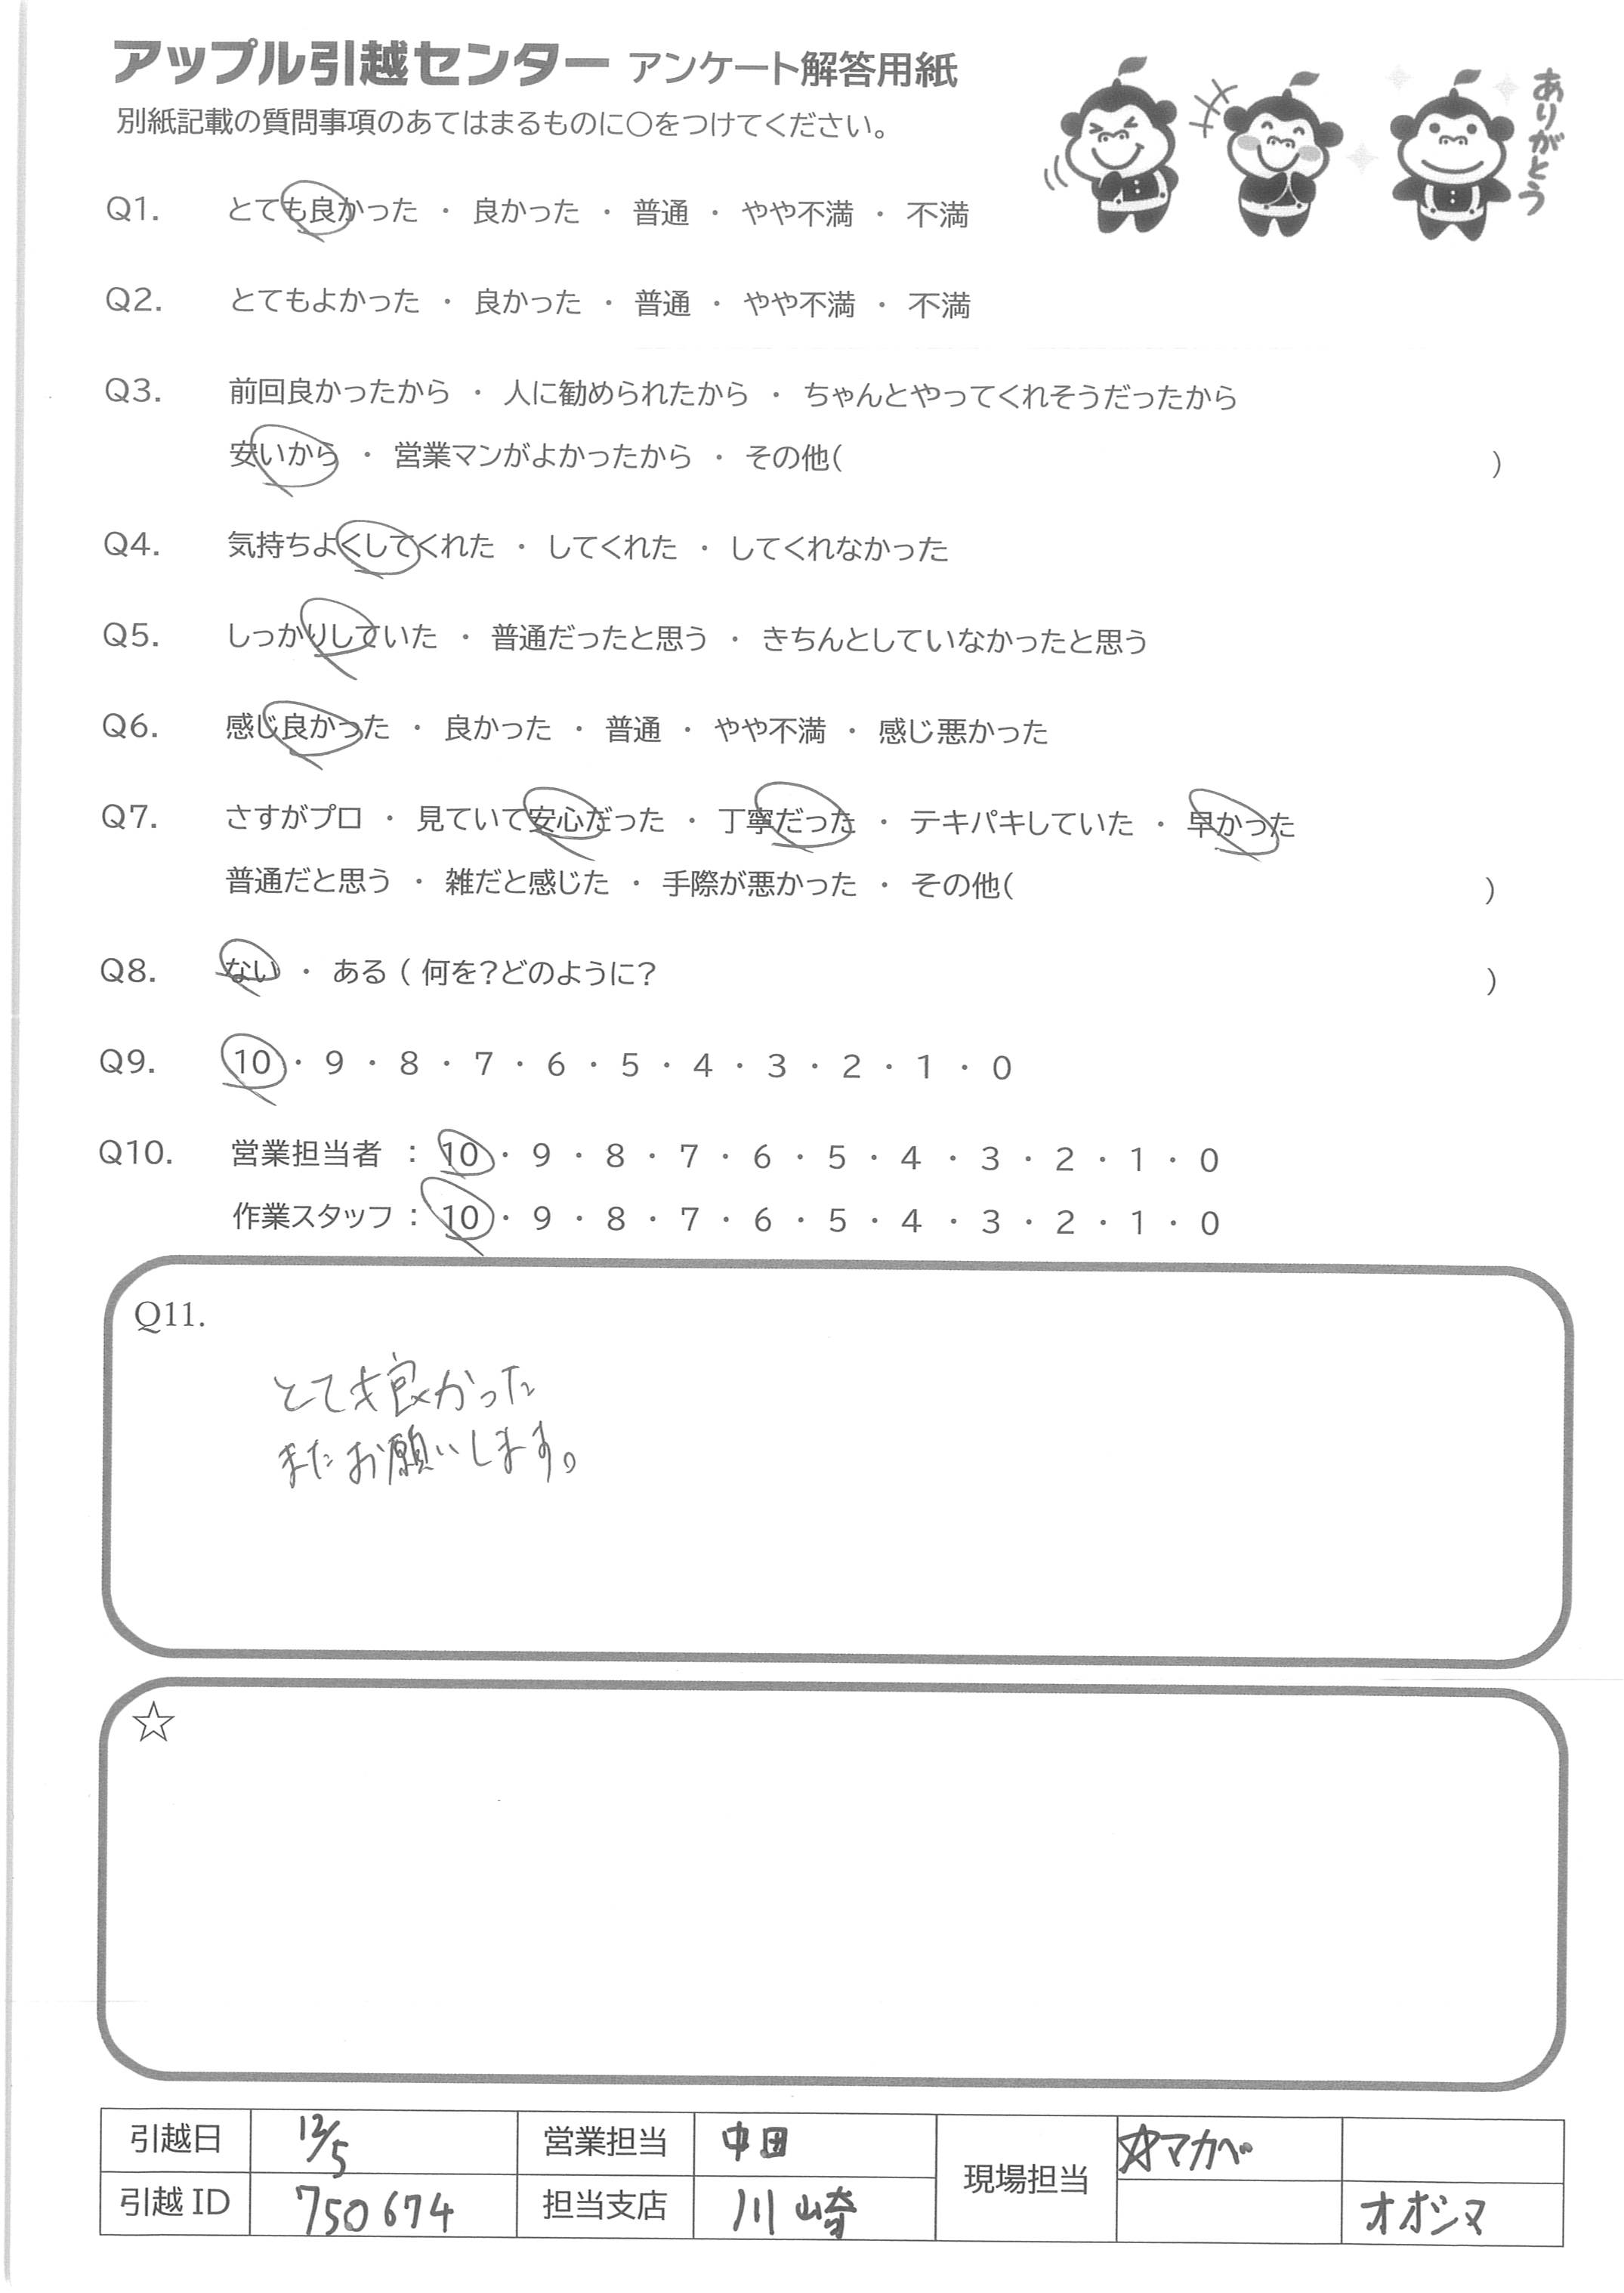 アップル引越センター アンケート解答用紙
別紙記載の質問事項のあてはまるものに○をつけてください。
ありがとう
Q1. とても良かった ・ 良かった ・ 普通 ・ やや不満 ・ 不満
Q2. とてもよかった ・ 良かった ・ 普通 ・ やや不満 ・ 不満
Q3. 前回良かったから ・ 人に勧められたから ・ ちゃんとやってくれそうだったから
安いから ・ 営業マンがよかったから ・ その他( )
Q4. 気持ちよくしてくれた ・ してくれた ・ してくれなかった
Q5. しっかりしていた ・ 普通だったと思う ・ きちんとしていなかったと思う
Q6. 感じ良かった ・ 良かった ・ 普通 ・ やや不満 ・ 感じ悪かった
Q7. さすがプロ ・ 見ていて安心だった ・ 丁寧だった ・ テキパキしていた ・ 早かった
普通だと思う ・ 雑だと感じた ・ 手際が悪かった ・ その他( )
Q8. ない ・ ある ( 何を?どのように? )
Q9. 10 ・ 9 ・ 8 ・ 7 ・ 6 ・ 5 ・ 4 ・ 3 ・ 2 ・ 1 ・ 0
Q10. 営業担当者 : 10 ・ 9 ・ 8 ・ 7 ・ 6 ・ 5 ・ 4 ・ 3 ・ 2 ・ 1 ・ 0
作業スタッフ : 10 ・ 9 ・ 8 ・ 7 ・ 6 ・ 5 ・ 4 ・ 3 ・ 2 ・ 1 ・ 0
Q11.
とても良かった
またお願いします。
☆
引越日 12/5 営業担当 中田 現場担当 ☆マカベ
引越ID 750674 担当支店 川崎 オオシマ